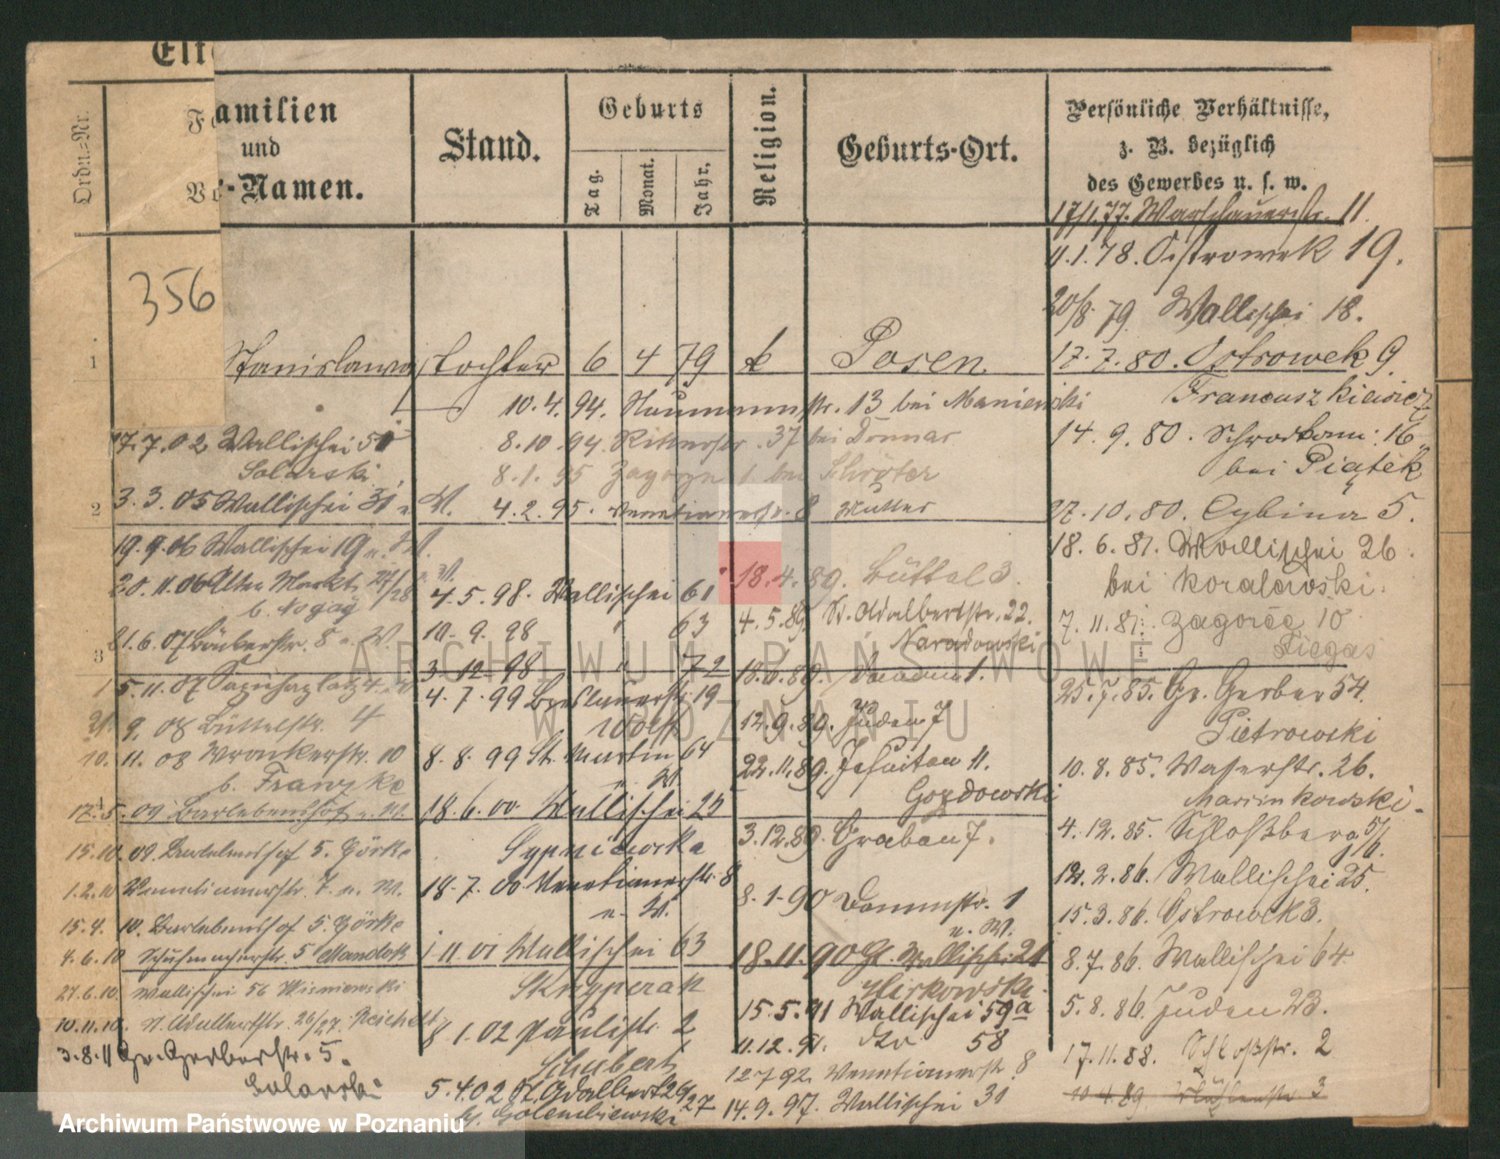 Familien
und
Vor-Namen.
Ordn.-Nr.
Stand.
Geburts
Tag.
Monat.
Jahr.
Religion.
Geburts-Ort.
Persönliche Verhältnisse,
z. B. bezüglich
des Gewerbes u. s. w.
356
17/1.77. Warschauerstr. 11.
11.1.78. Ostrowek 19.
20/8.79. Wallischei 18.
1 Stanislawa Tochter 6 4 79 k Posen.
17.7.80. Ostrowek 9.
Franciszkiewicz
14.9.80. Schrodkam. 16
bei Piątek
27.10.80. Cybina 5.
18.6.81. Wallischei 26.
bei Koralewski.
7.11.81. Zagorze 10
Fiegas
25.7.85. Gr. Gerber 54.
Pietrowski
10.8.85. Wasserstr. 26.
Marcinkowski.
4.12.85. Schloßberg 5/6.
12.2.86. Wallischei 25.
15.3.86. Ostrowek 3.
8.7.86. Wallischei 64
5.8.86. Juden 23.
17.11.88. Schloßstr. 2
10.4.89. 3
10.4.94. Naumannstr. 13 bei Maniewski
8.10.94 Ritterstr. 37 bei Donnar
8.1.95 Zagorze 1 bei Schröter
4.2.95. Venetianerstr. 8 Mutter
17.7.02 Wallischei 51
Solarski
2
3.3.05 Wallischei 31 u. M.
19.9.06 Wallischei 19 u. M.
20.11.06 Alter Markt 27/28 u. M.
b. Nogaj
21.6.07 Büttelstr. 8 u. M.
3
15.11.07 Sapiehaplatz 4
21.9.08 Büttelstr. 4
10.11.08 Wronkerstr. 10
b. Franzke
4
17.5.09 Barlebenshof u. M.
15.10.09 Barlebenshof 5. Görke
1.2.10 Venetianerstr. 7. u. M.
15.4.10. Barlebenshof 5 Görke
4.6.10 Schuhmacherstr. 5 Mandok
27.6.10. Wallischei 56 Wisniewski
10.11.10. St. Adalbertstr. 26/27. Reichelt
3.8.11 Gr. Gerberstr. 5.
Solarski
4.5.98. Wallischei 61
10.9.98 " 63
3.12.98 " 72
4.7.99 Breslauerstr. 19
Wolff
8.8.99 St. Martin 64
u. M.
18.6.00. Wallischei 25
Sypniewska
18.7.00 Venetianerstr. 8
u. M.
1.11.01 Wallischei 63
Skrzypczak
8.1.02 Paulistr. 2
Schubert
5.4.02 St. Adalbert 26/27
b. Golembiewski
18.4.89. Büttel 3.
4.5.89. St. Adalbertstr. 22.
Naradowski
12.9.89. Juden 7
22.11.89. Jesuiten 11.
Gozdowski
3.12.89. Graben 7.
8.1.90 Dammstr. 1
u. M.
18.11.90 Gr. Wallischei 21
15.5.91 Wallischei 59a
11.12.91. do 58
12.7.92. Venetianerstr. 8
14.9.97. Wallischei 31
ARCHIWUM PAŃSTWOWE
W POZNANIU
Archiwum Państwowe w Poznaniu